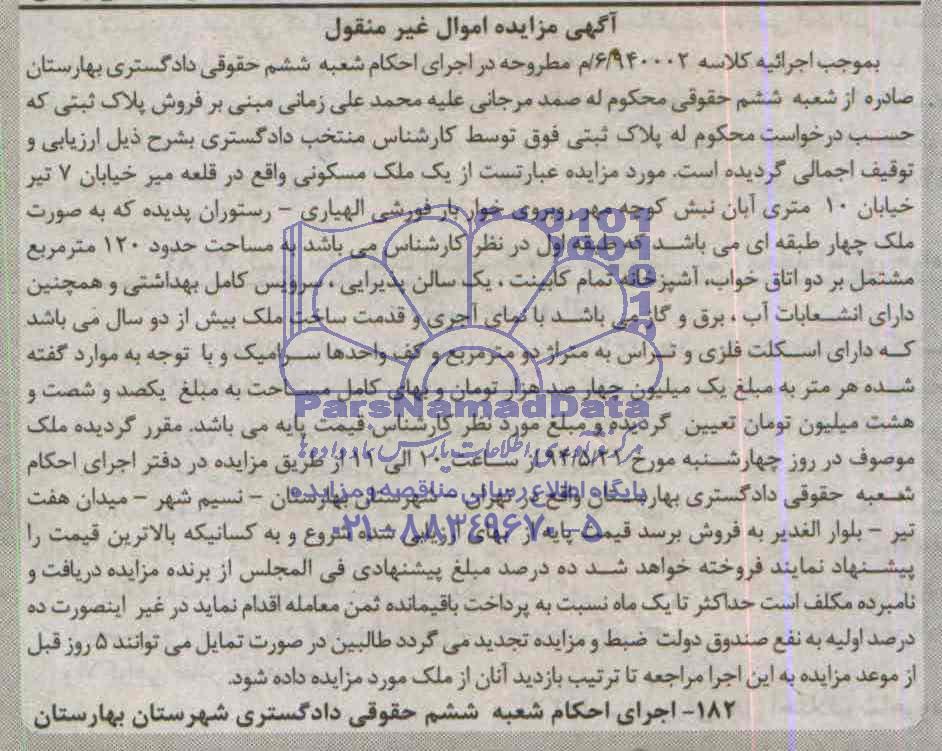 آگهی مزایده اموال غیر منقول
بموجب اجرائیه کلاسه ۶/۹۴۰۰۰۲/م مطروحه در اجرای احکام شعبه ششم حقوقی دادگستری بهارستان
صادره از شعبه ششم حقوقی محکوم له صمد مرجانی علیه محمد علی زمانی مبنی بر فروش پلاک ثبتی که
حسب درخواست محکوم له پلاک ثبتی فوق توسط کارشناس منتخب دادگستری بشرح ذیل ارزیابی و
توقیف اجمالی گردیده است. مورد مزایده عبارتست از یک ملک مسکونی واقع در قلعه میر خیابان ۷ تیر
خیابان ۱۰ متری آبان نبش کوچه مهر روبروی خوار بار فورشی الهیاری – رستوران پدیده که به صورت
ملک چهار طبقه ای می باشد که طبقه اول در نظر کارشناس می باشد به مساحت حدود ۱۲۰ مترمربع
مشتمل بر دو اتاق خواب، آشپزخانه تمام کابینت ، یک سالن پذیرایی ، سرویس کامل بهداشتی و همچنین
دارای انشعابات آب ، برق و گاز می باشد با نمای آجری و قدمت ساخت ملک بیش از دو سال می باشد
که دارای اسکلت فلزی و تراس به متراژ دو مترمربع و کف واحدها سرامیک و با توجه به موارد گفته
شده هر متر به مبلغ یک میلیون چهار صد هزار تومان و بهای کامل مساحت به مبلغ یکصد و شصت و
ParsNamadData
هشت میلیون تومان تعیین گردیده و مبلغ مورد نظر کارشناس قیمت پایه می باشد. مقرر گردیده ملک
موصوف در روز چهارشنبه مورخ ۹۴/۵/۲۱ از ساعت ۱۰ الی ۱۱ از طریق مزایده در دفتر اجرای احکام
شعبه حقوقی دادگستری بهارستان واقع در تهران – شهرستان بهارستان – نسیم شهر – میدان هفت
پایگاه اطلاع رسانی مناقصه و مزایده
تیر – بلوار الغدیر به فروش برسد قیمت پایه از بهای ارزیابی شده شروع و به کسانیکه بالاترین قیمت را
۰۲۱-۸۸۳۴۹۶۷۰-۵
پیشنهاد نمایند فروخته خواهد شد ده درصد مبلغ پیشنهادی فی المجلس از برنده مزایده دریافت و
نامبرده مکلف است حداکثر تا یک ماه نسبت به پرداخت باقیمانده ثمن معامله اقدام نماید در غیر اینصورت ده
درصد اولیه به نفع صندوق دولت ضبط و مزایده تجدید می گردد طالبین در صورت تمایل می توانند ۵ روز قبل
از موعد مزایده به این اجرا مراجعه تا ترتیب بازدید آنان از ملک مورد مزایده داده شود.
۱۸۲- اجرای احکام شعبه ششم حقوقی دادگستری شهرستان بهارستان